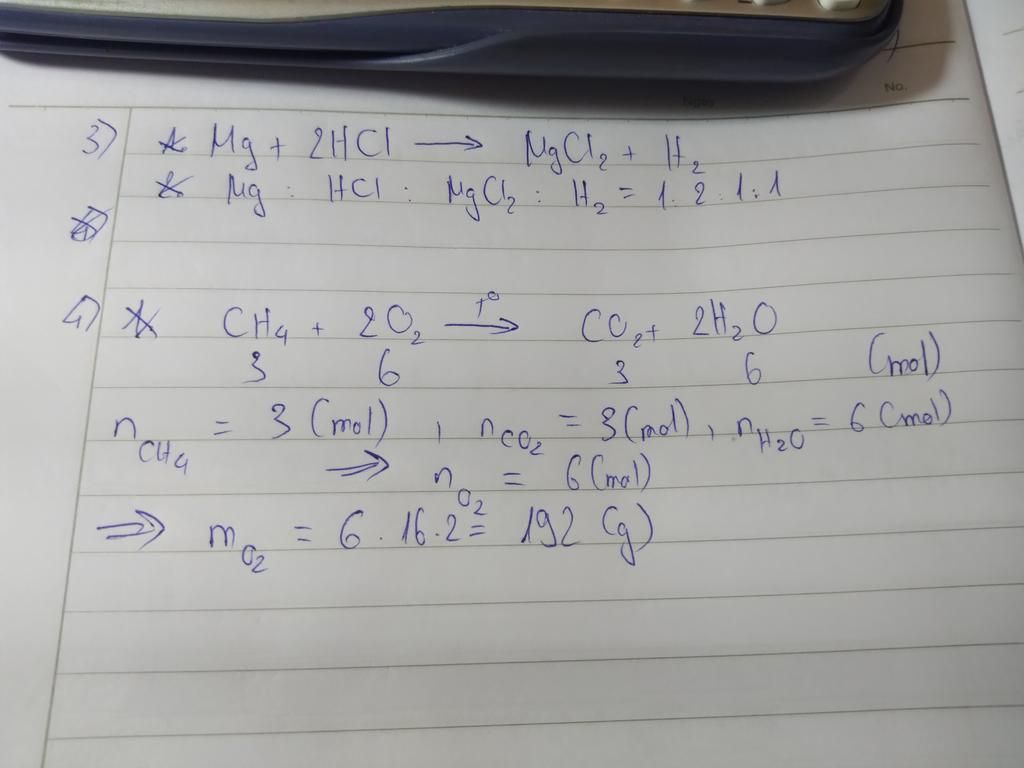 Ngày No.
3) * Mg + 2HCl → MgCl₂ + H₂
* Mg : HCl : MgCl₂ : H₂ = 1 : 2 : 1 : 1
4) * CH₄ + 2O₂ —t°→ CO₂ + 2H₂O
3 6 3 6 (mol)
n CH₄ = 3 (mol) , n CO₂ = 3 (mol) , n H₂O = 6 (mol)
⇒ n O₂ = 6 (mol)
⇒ m O₂ = 6 . 16 . 2 = 192 (g)